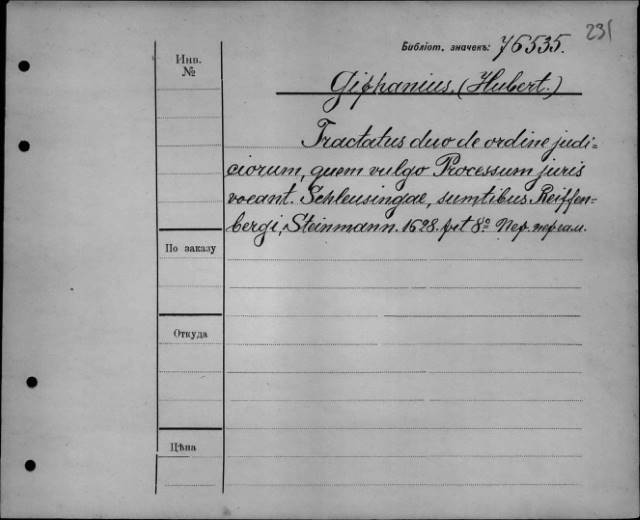 231
Библіот. значекъ: 76535.
Инв.
№
Giphanius. (Hubert.)
Tractatus duo de ordine judi=
ciorum, quem vulgo Processum juris
vocant. Schleusingae, sumtibus Reiffen=
bergi, Steinmann. 1628. pet 8º Пер. пергам.
По заказу
Откуда
Цѣна